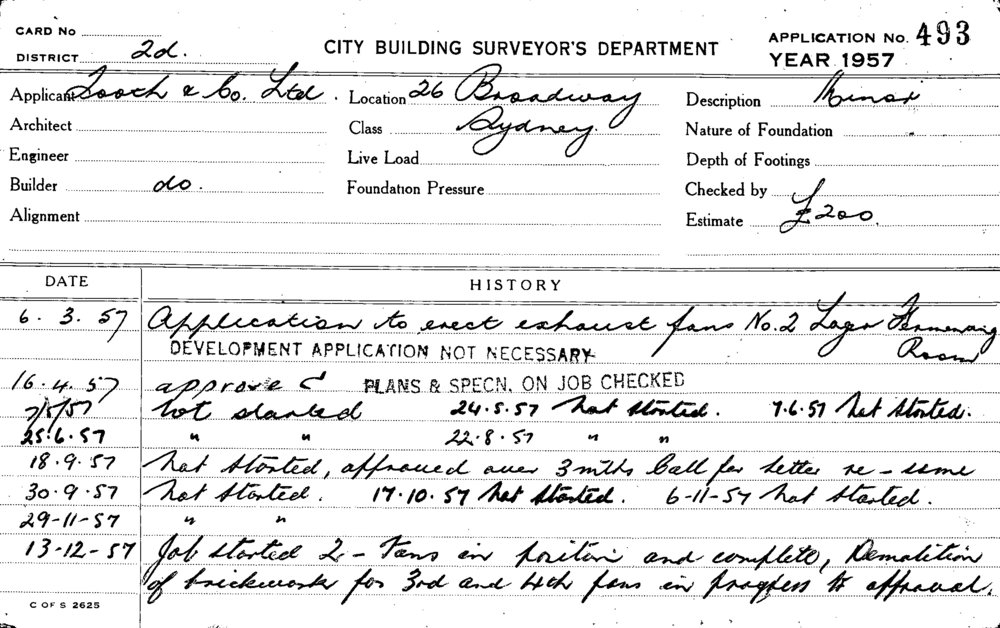 CARD No
DISTRICT 2d.
CITY BUILDING SURVEYOR'S DEPARTMENT
APPLICATION No. 493
YEAR 1957
Applicant Tooth & Co. Ltd. Location 26 Broadway Description Minor
Architect Class Sydney. Nature of Foundation
Engineer Live Load Depth of Footings
Builder do. Foundation Pressure Checked by
Alignment Estimate £200.
DATE HISTORY
6. 3. 57 Application to erect exhaust fans No. 2 Lager Fermenting
Room
DEVELOPMENT APPLICATION NOT NECESSARY
16. 4. 57 approved PLANS & SPECN. ON JOB CHECKED
7/5/57 Not started 24.5.57 Not started. 7.6.57 Not started.
25.6.57 " " 22.8.57 " "
18.9.57 Not started, approved over 3 mths Call for letter re-same
30.9.57 Not started. 17.10.57 Not started. 6-11-57 Not started.
29-11-57 " "
13-12-57 Job started 2 - Fans in position and complete, Demolition
of brickwork for 3rd and 4th fans in progress to approval.
C OF S 2625